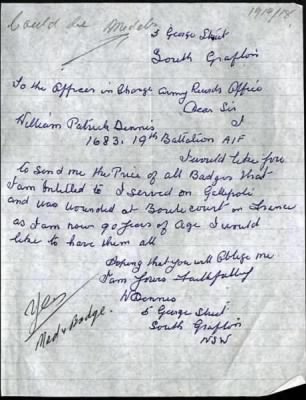 Could be Medals
1919/18
5 George Street
South Grafton
To the Officer in Charge Army Records Office
Dear Sir
William Patrick Dennis I
1683. 19th Battalion AIF
I would like for
to Send me the Price of all Badges that
I am Entitled to I Served on Gallipoli
and was wounded at Boulecourt in France
as I am now 90 years of Age I would
like to have them all
Hoping that you will Oblige me
I am Yours Faithfully
W Dennis
5 George Street
South Grafton
NSW
Yes
Med & Badge.